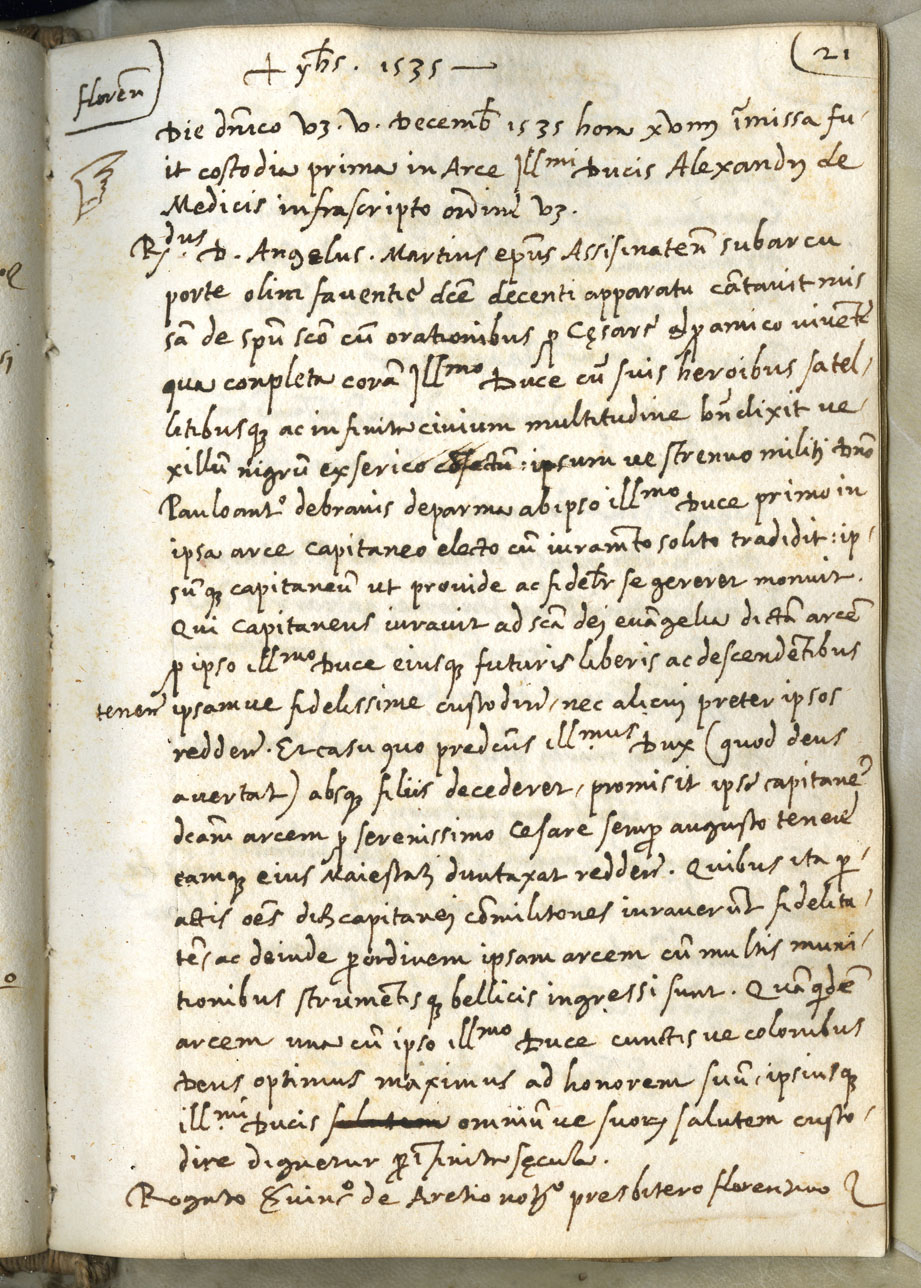 21
+ yhs. 1535
floreñ
Die dñico vz. v. Decemb 1535 hora xviii īmissa fu-
it costodia prima in Arce Illmi Ducis Alexandrj de
Medicis infrascripto ordinē vz.
Rdus. D. Angelus. Martius epus Assisinateñ sub arcu
porte olim faventiē dcē decenti apparatu cātavit mis
sā de spū scō cū orationibus p Cęsare ac p amico vivente
qua conpleta corā Illmo Duce cū suis heroibus satel-
litibusq ac infinita civium multitudine bñdixit ve-
xillū nigrū ex serico : ipsum ve strenuo militj Dño
Pauloantº debravis deparma ab ipso illmo Duce primo in
ipsa arce capitaneo electo cū iuramto solito tradidit: ip-
sūq capitaneū ut provide ac fidelr se gereret monuit.
Qui capitaneus iuravit ad scā dej evāgelia dictā arcē
p ipso illmo Duce eiusq futuris liberis ac descendētibus
tenere ipsamve fidelissime custodire, nec alicuj preter ipsos
reddere. Et casu quo predcus ill.mus Dux (quod deus
avertat) absq filiis decederet, promisit ipse capitanē
dcam arcem p serenissimo Cesare semp augusto tenere
eamq eius Maiestati duntaxat reddere. Quibus ita p-
actis oēs dicti capitanej cōmilitones iuraverūt fidelita-
tē, ac deinde p ordinem ipsam arcem cū multis muni-
tionibus strumētisq bellicis ingressi sunt. Quā qidē
arcem una cū ipso illmo Duce cunctisve colonibus
Deus optimus maximus ad honorem suū, ipsiusq
ill.mi Ducis salutem omniūve suorz salutem custo-
dire dignetur p īfinita sęcula.
Rogato de Aretio notº presbitero florentino